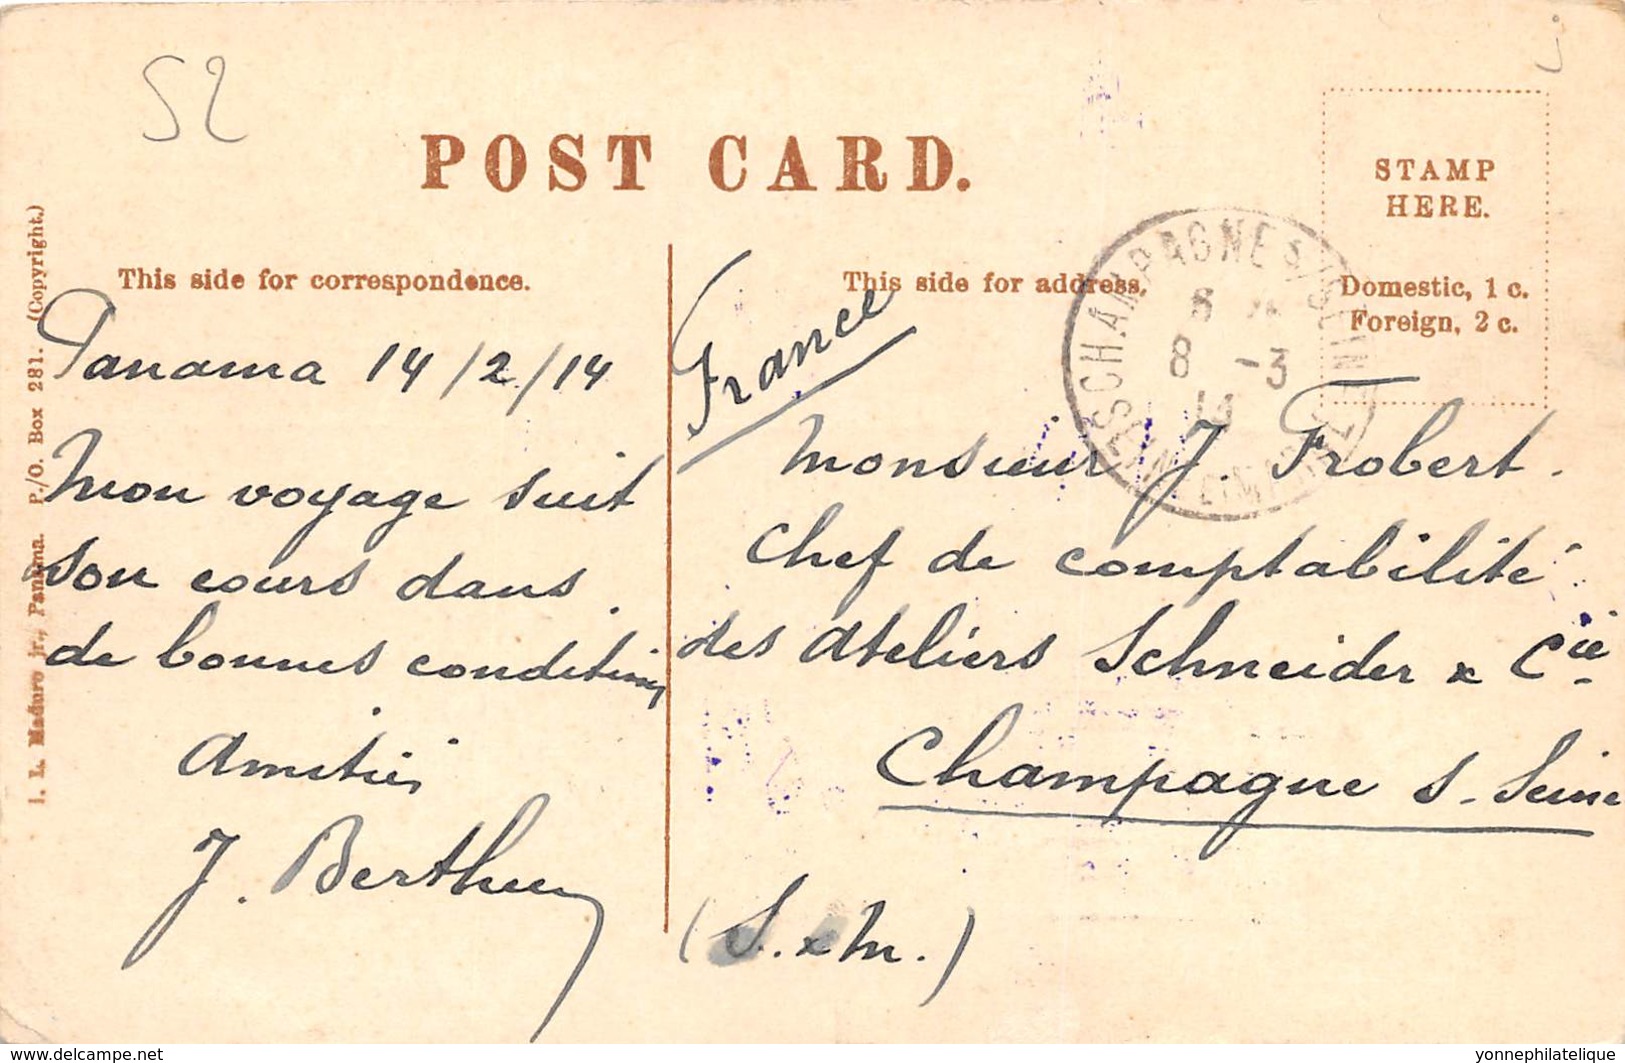 52
POST CARD.
STAMP
HERE.
Domestic, 1 c.
Foreign, 2 c.
I. L. Maduro jr., Panama. P./O. Box 281. (Copyright.)
This side for correspondence.
Panama 14/2/14
Mon voyage suit
son cours dans
de bonnes conditions
Amitiés
J.
This side for address.
France
Monsieur J. Frobert.
Chef de comptabilité
des Ateliers Schneider & Cie
Champagne s. Seine
(S. & M.)
CHAMPAGNE S/
8 -3
www.delcampe.net
yonnephilatelique